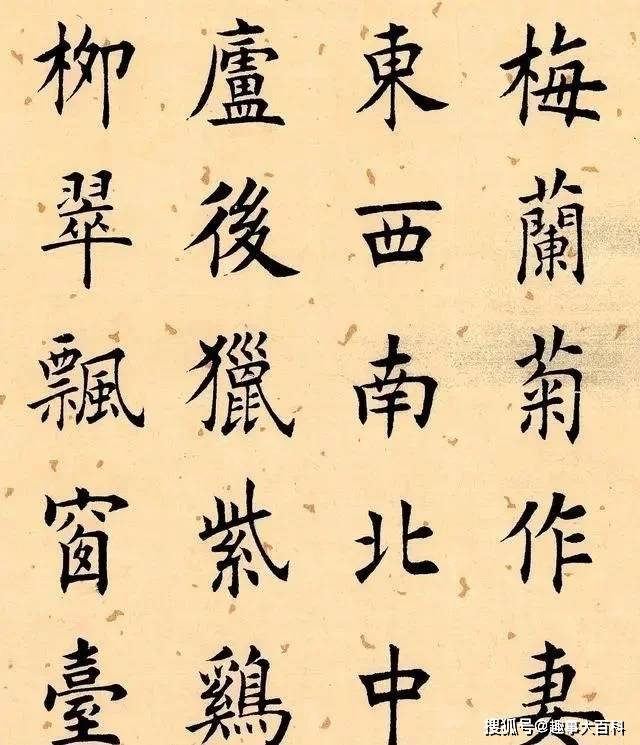 梅蘭菊作妻
東西南北中
廬後獵紫鷄
柳翠飄窗臺
搜狐号@趣事大百科